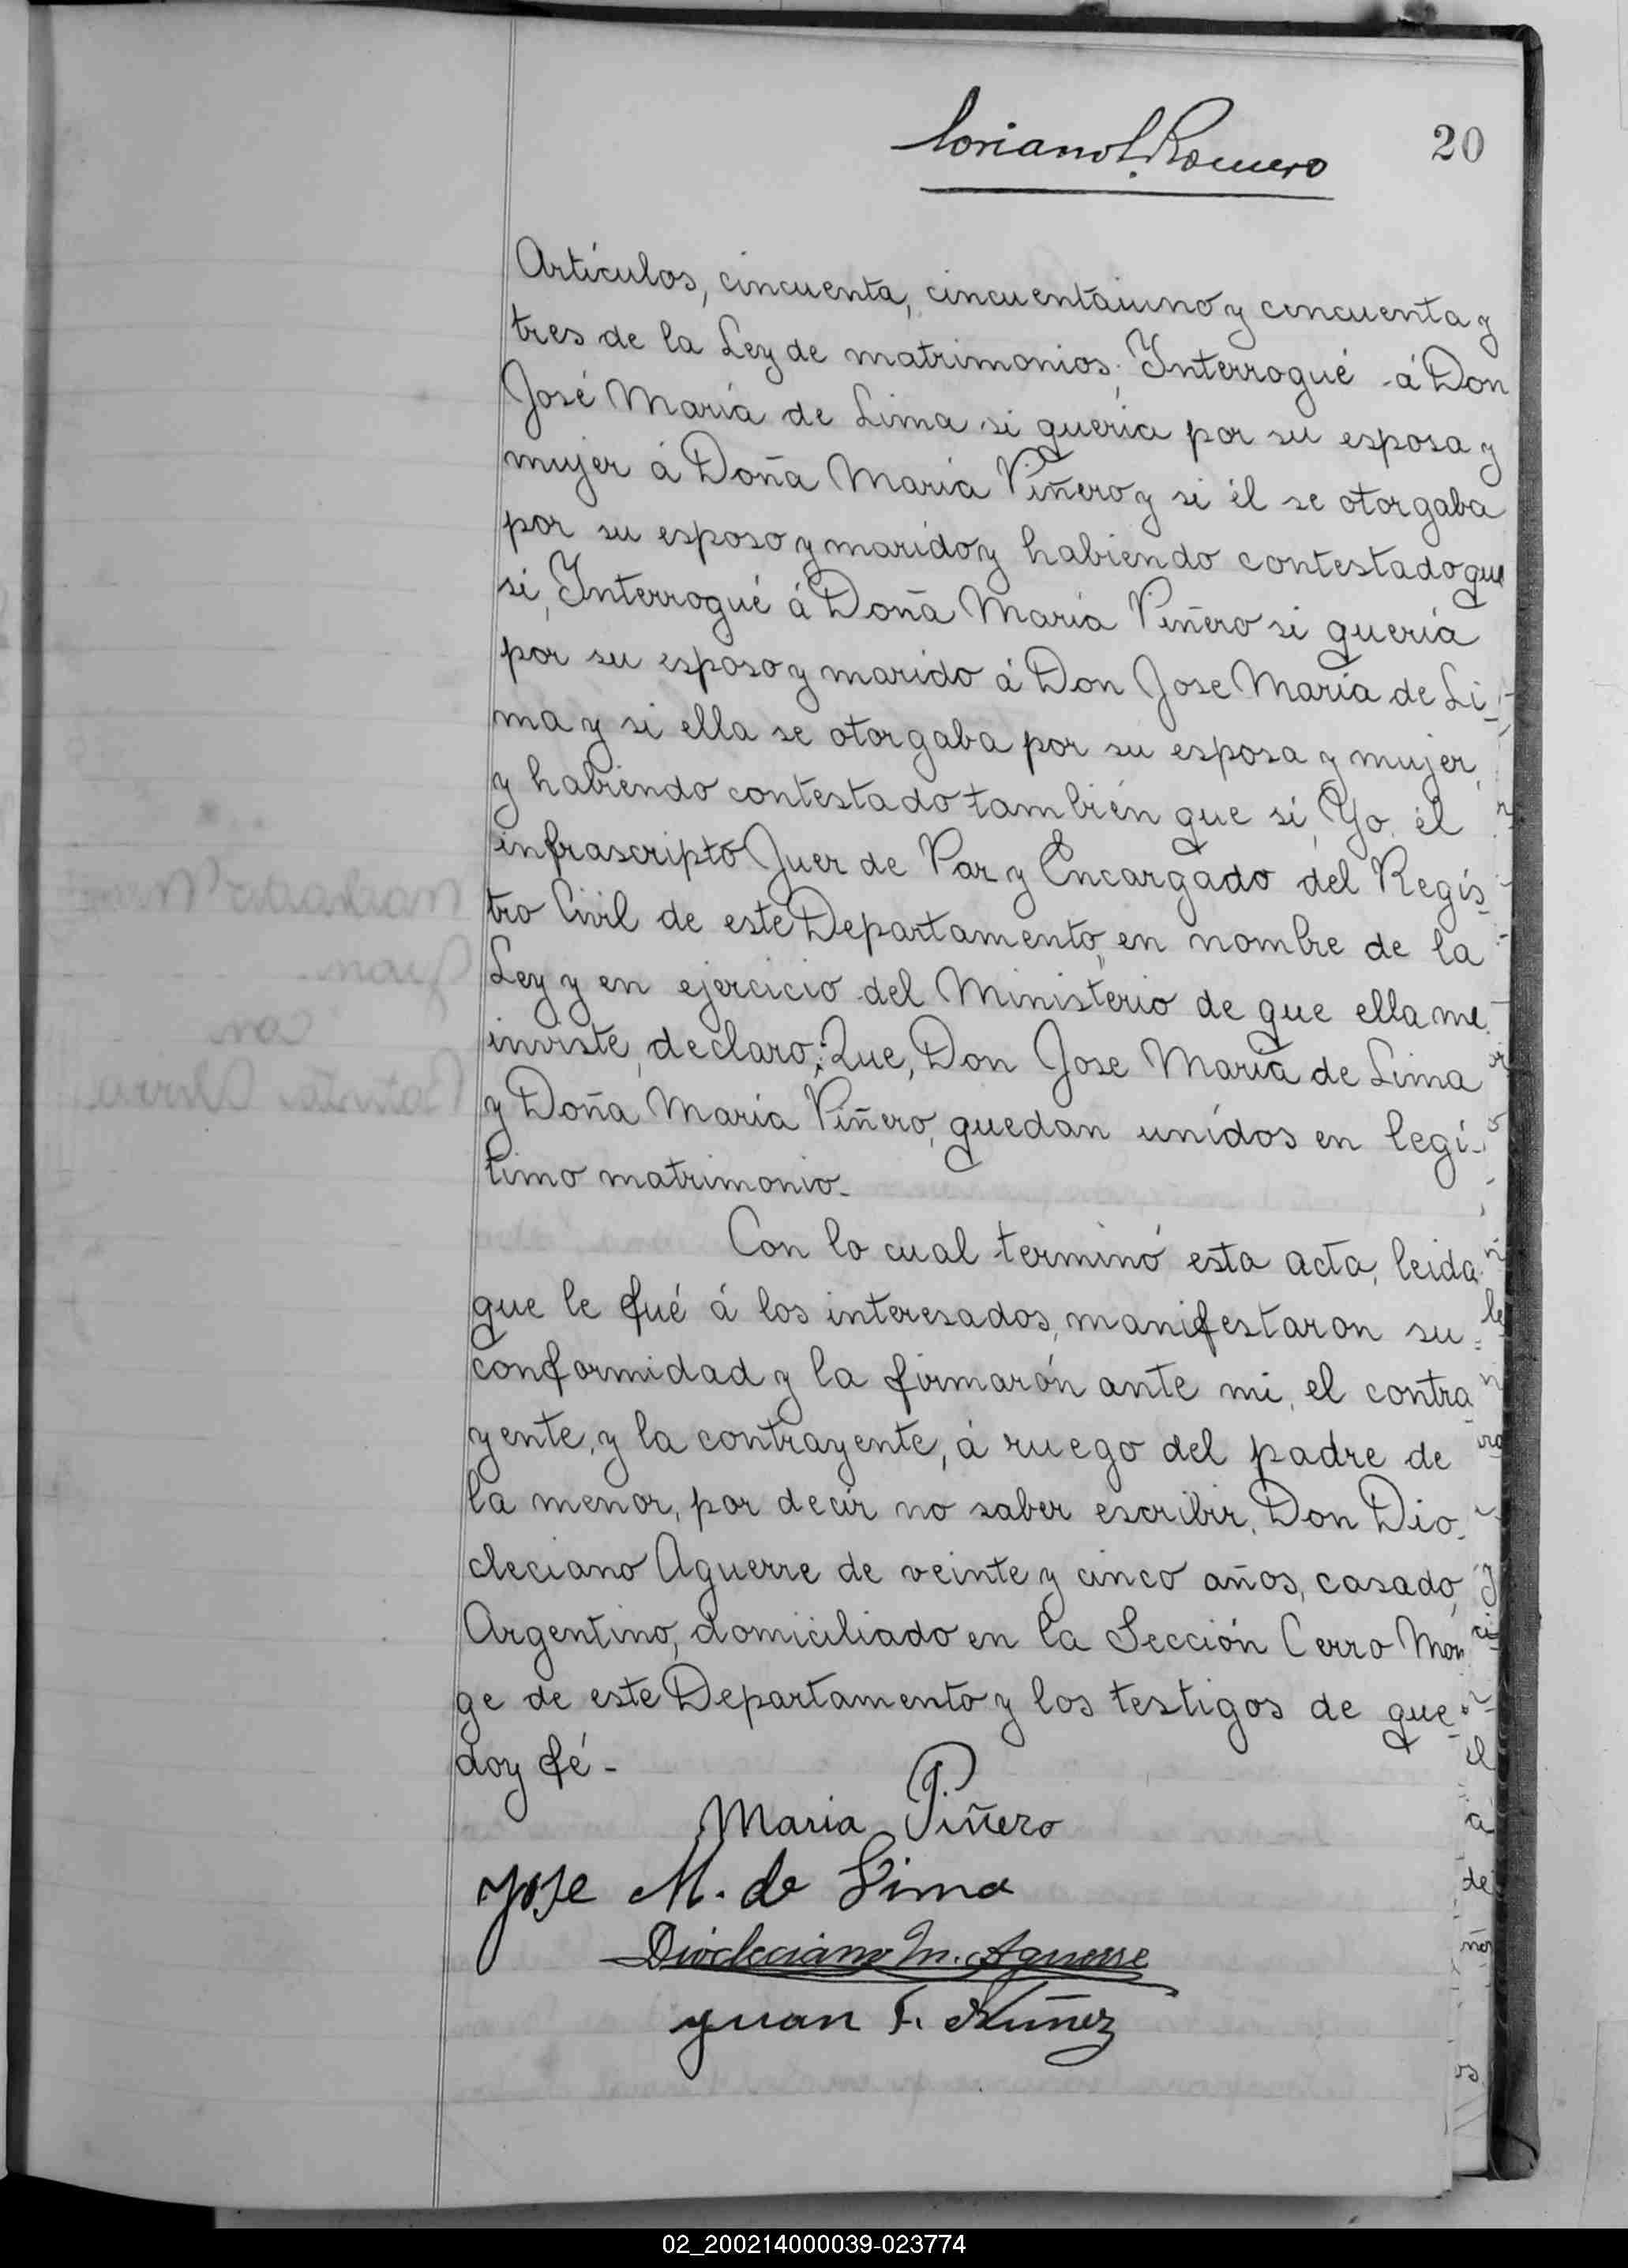 20
Loriano L. Romero
Artículos, cincuenta, cincuentaiuno y cincuenta y
tres de la Ley de matrimonios; Interrogué á Don
José María de Lima si quería por su esposa y
mujer á Doña María Piñero y si él se otorgaba
por su esposo y marido y habiendo contestado que
si, Interrogué á Doña María Piñero si quería
por su esposo y marido á Don Jose María de Li-
ma y si ella se otorgaba por su esposa y mujer,
y habiendo contestado también que si, Yo el
infrascripto Juez de Paz y Encargado del Regis-
tro Civil de este Departamento, en nombre de la
Ley y en ejercicio del Ministerio de que ella me
inviste, declaro; Que, Don Jose María de Lima
y Doña María Piñero, quedan unidos en legi-
timo matrimonio.-
Con lo cual terminó esta acta, leida
que le fué á los interesados, manifestaron su
conformidad y la firmarón ante mi, el contra-
yente, y la contrayente, á ruego del padre de
la menor, por decir no saber escribir, Don Dio-
cleciano Aguerre de veinte y cinco años, casado,
Argentino, domiciliado en la Sección Cerro Mon
ge de este Departamento y los testigos de que
doy fé-
Maria Piñero
Jose M. de Lima
Diocleciano M. Aguerre
Juan F. Nuñez
02_200214000039-023774